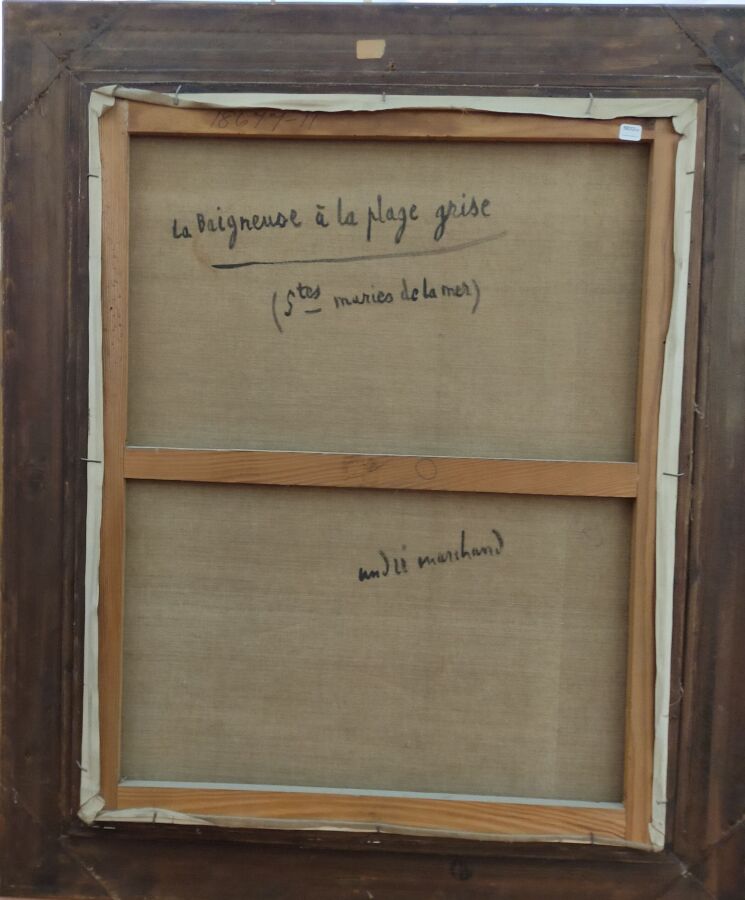 La Baigneuse à la plage grise
(Stes maries de la mer)
andré marchand